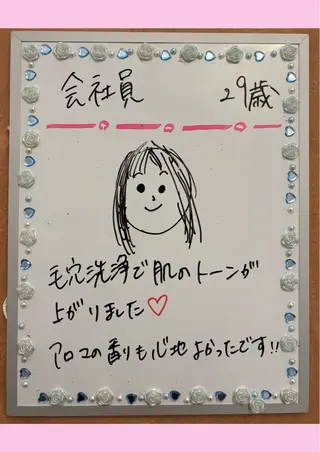 会社員 29歳
毛穴洗浄で肌のトーンが
上がりました♡
アロマの香りも心地よかったです!!